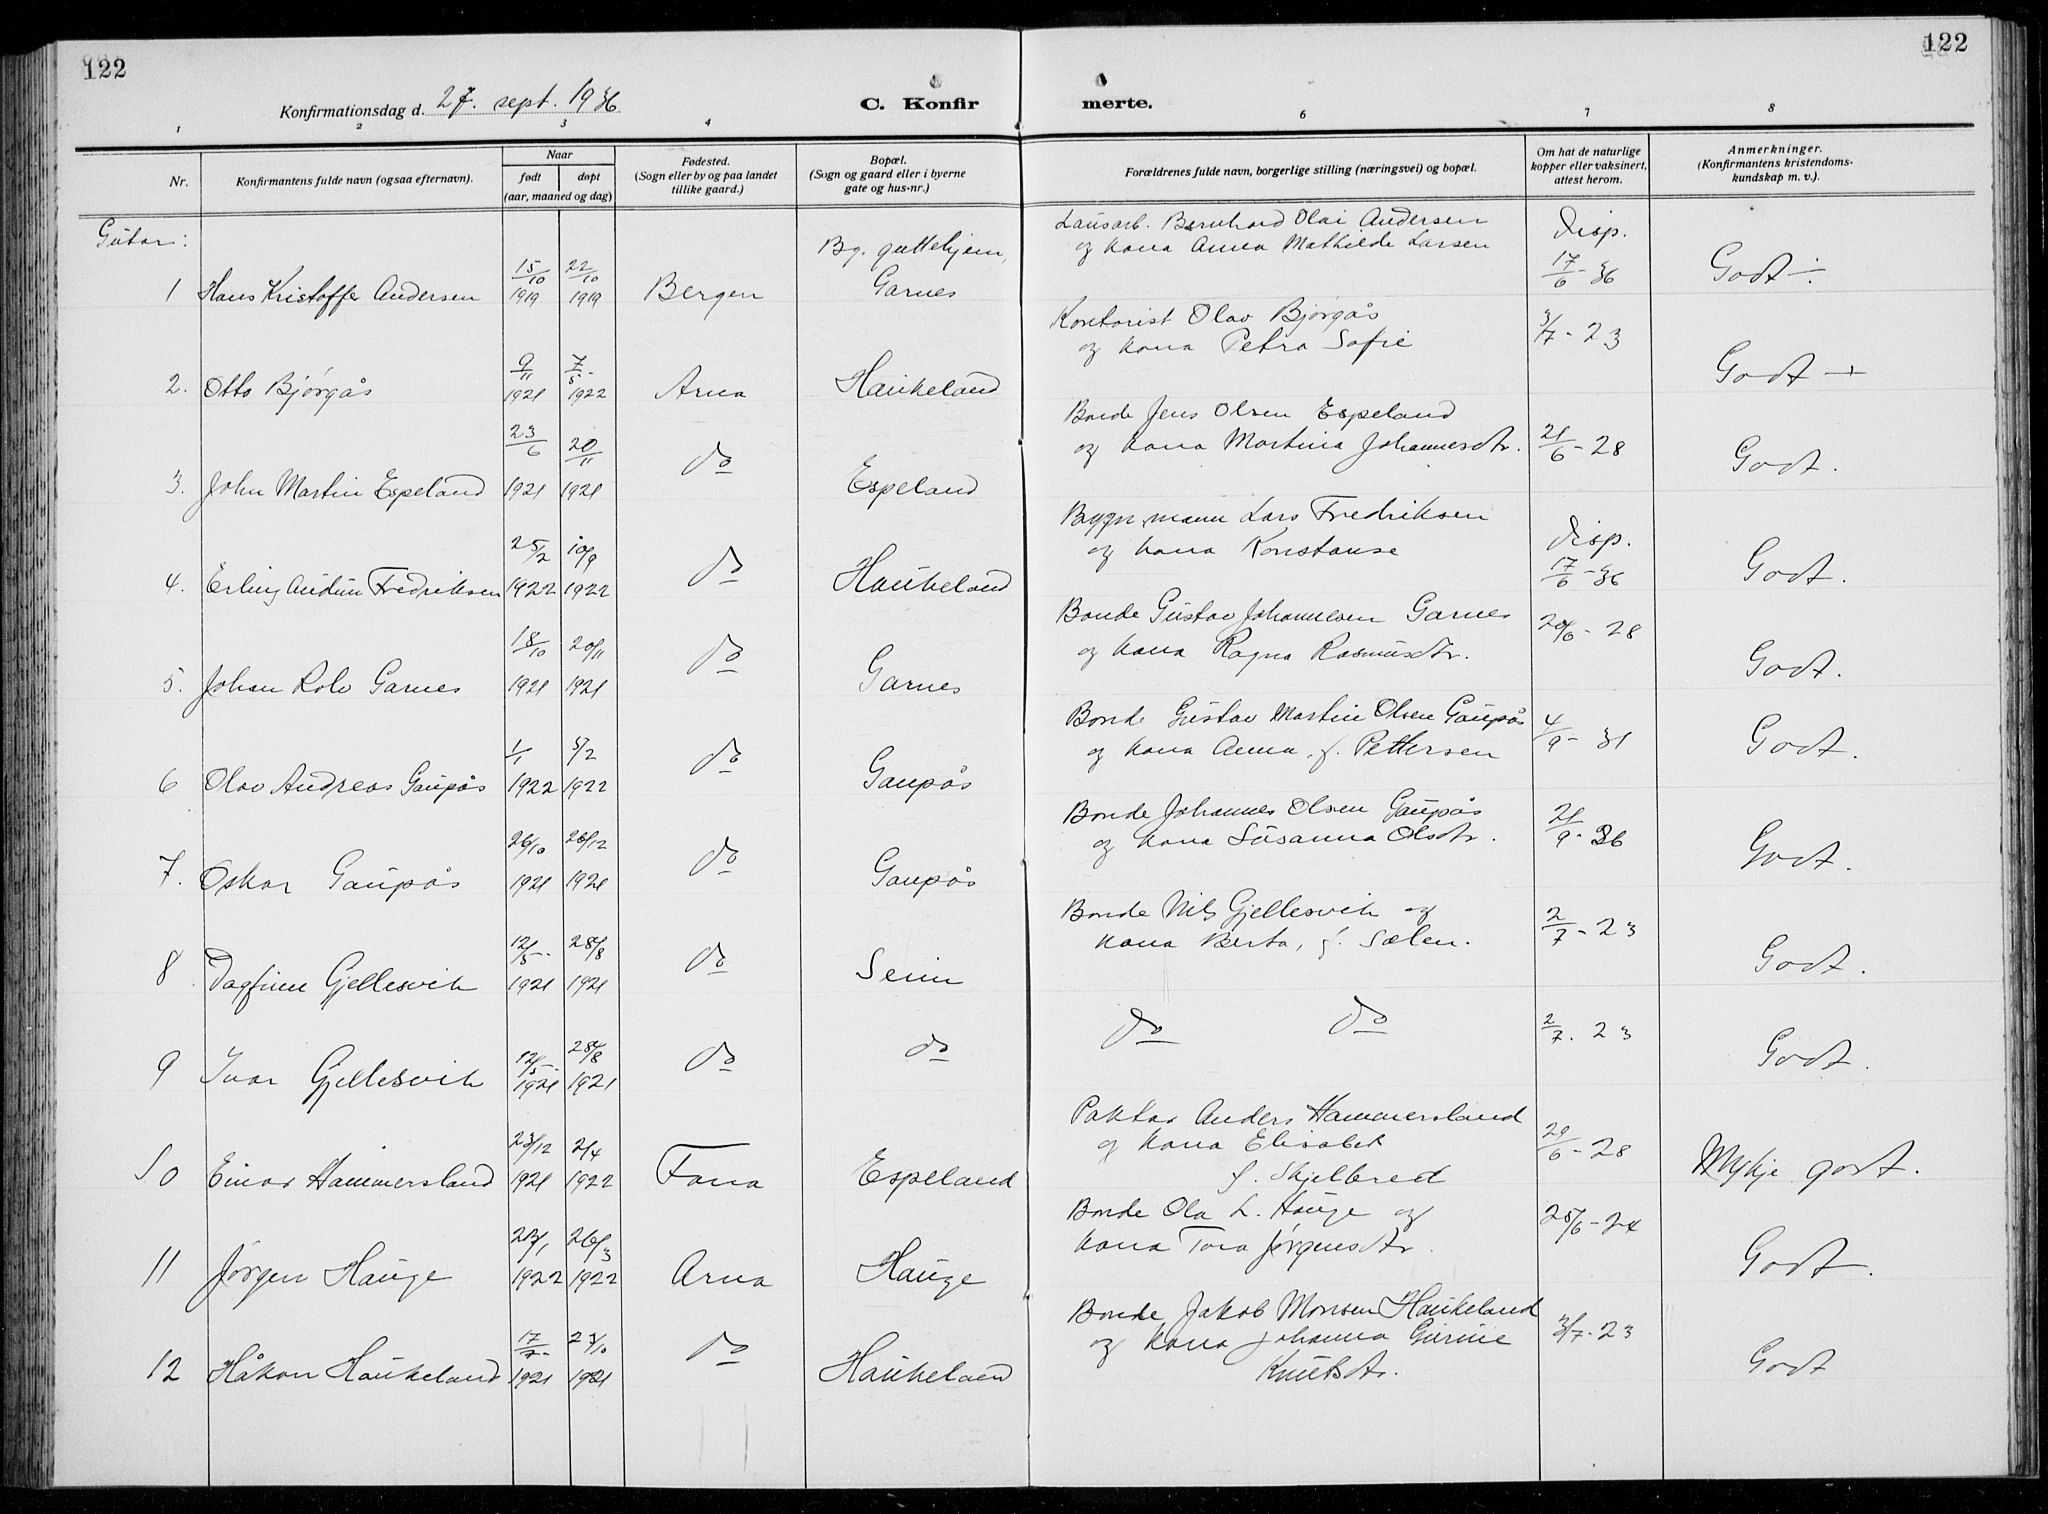 122
122
Konfirmationsdag d. 27. sept. 1936
C. Konfir
merte.
1 2 3 4 6 7 8
Nr.
Konfirmantens fulde navn (ogsaa efternavn).
Naar
født
døpt
(aar, maaned og dag)
Fødested.
(Sogn eller by og paa landet
tillike gaard.)
Bopæl.
(Sogn og gaard eller i byerne
gate og hus-nr.)
Forældrenes fulde navn, borgerlige stilling (næringsvei) og bopæl.
Om hat de naturlige
kopper eller vaksinert,
attest herom.
Anmerkninger.
(Konfirmantens kristendoms-
kundskap m. v.).
Gutar:
1 Hans Kristoffer Andersen 15/10 1919 22/10 1919 Bergen Bg. guttehjem, Garnes
Lausarb. Bernhard Olai Andersen
og kona Anna Mathilde Larsen
disp. 17/6 - 36 Godt ÷
2. Otto Bjørgås 9/11 1921 7/5 1922 Arna Haukeland
Kontorist Olav Bjørgås
og kona Petra Sofie
3/7 - 23 Godt +
3. John Martin Espeland 23/6 1921 20/11 1921 do Espeland
Bonde Jens Olsen Espeland
og kona Martina Johannesdtr.
21/6 - 28 Godt.
4. Erling Audun Fredriksen 25/2 1922 10/9 1922 do Haukeland
Bygn.mann Lars Fredriksen
og kona Konstanse
disp. 17/6 - 36 Godt.
5. Johan Rolv Garnes 18/10 1921 20/11 1921 do Garnes
Bonde Gustav Johannesen Garnes
og kona Ragna Rasmusdtr.
20/6 - 28 Godt.
6 Olav Andreas Gaupås 1/1 1922 5/2 1922 do Gaupås
Bonde Gustav Martin Olsen Gaupås
og kona Anna, f. Pettersen
4/9 - 31 Godt.
7. Oskar Gaupås 26/10 1921 26/12 1921 do Gaupås
Bonde Johannes Olsen Gaupås
og kona Susanna Olsdtr.
21/9 - 36 Godt.
8 Dagfinn Gjellesvik 12/5 1921 28/8 1921 do Seim
Bonde Nils Gjellesvik og
kona Berta, f. Sælen.
2/7 - 23 Godt.
9 Ivar Gjellesvik 12/5 1921 28/8 1921 do do
do do
2/7. 23 Godt.
10 Einar Hammersland 23/12 1921 2/4 1922 Fana Espeland
Paktar Anders Hammersland
og kona Elisabet
f. Skjelbred
29/6 - 28 Mykje godt.
11 Jørgen Hauge 23/1 1922 26/3 1922 Arna Hauge
Bonde Ola L. Hauge og
kona Tora Jørgensdtr.
25/6 - 24 Godt.
12 Håkon Haukeland 17/7 1921 23/10 1921 do Haukeland
Bonde Jakob Monsen Haukeland
og kona Johanna Gurine
Knutsdtr.
3/7. 23 Godt